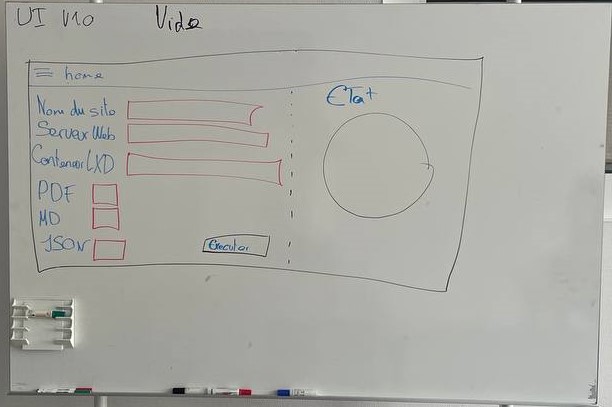 UI V10 Vide
home
Nom du site
Serveur Web
Conteneur LXD
PDF
MD
JSON
Executer
ETat